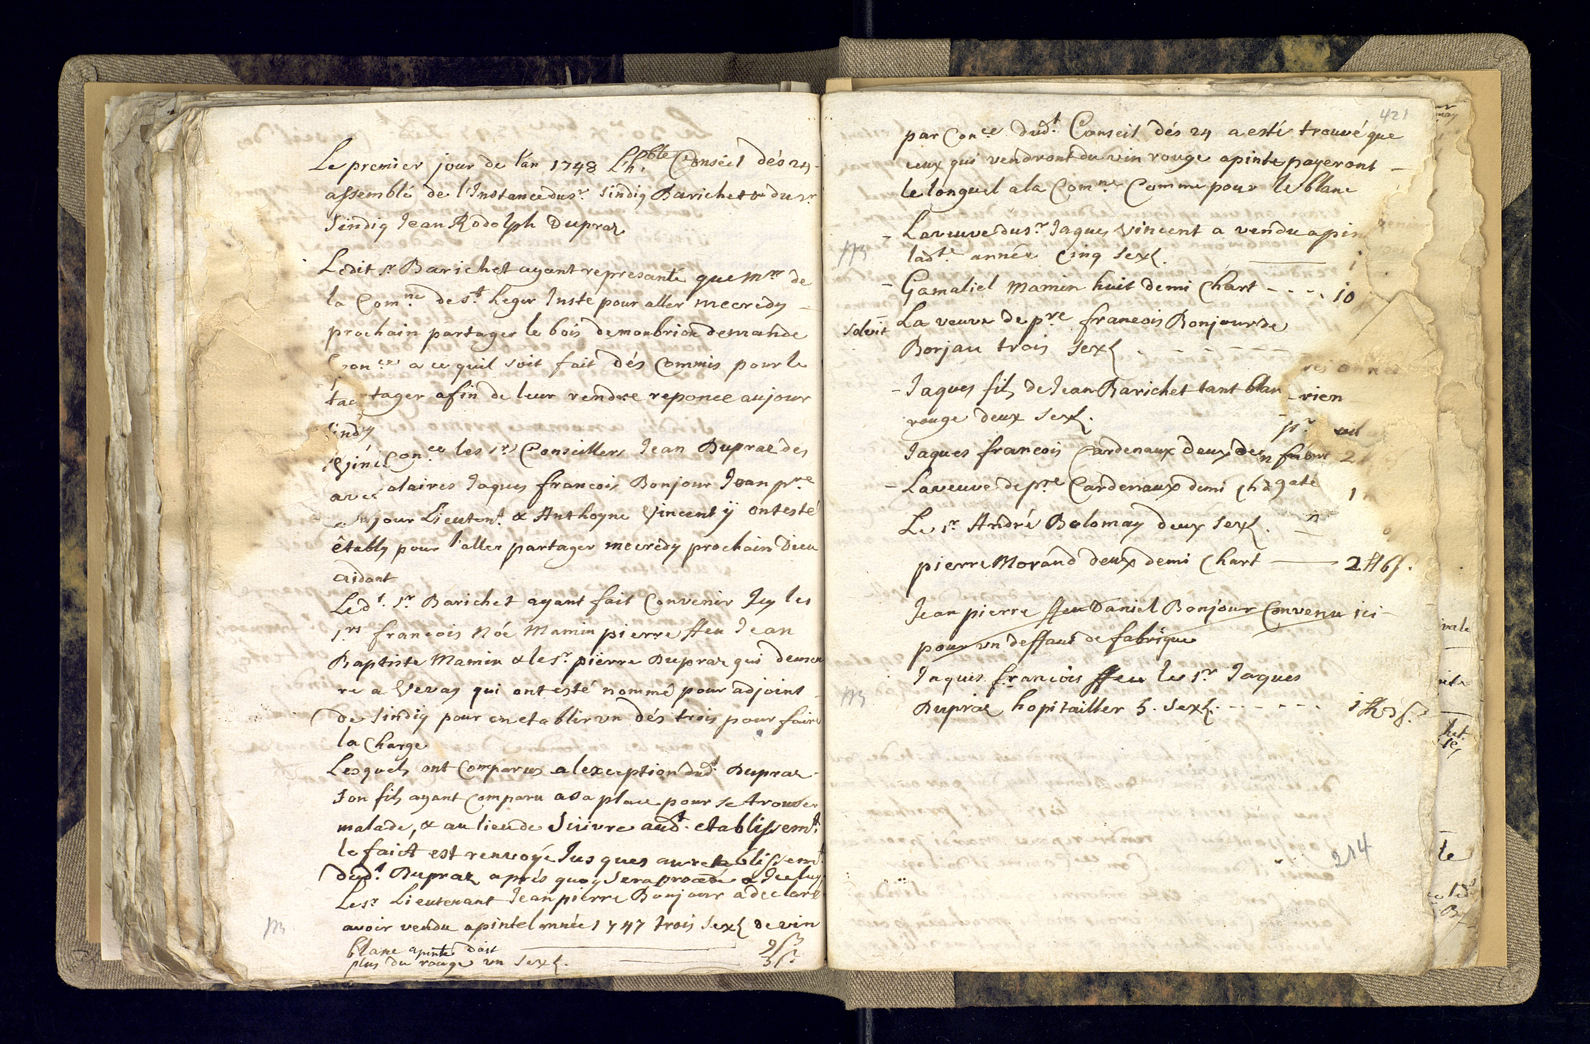 Le premier jour de l'an 1748 Lh.ble Conseil dés 24
assemblé de l'Instance du sr. Sindiq Barichet & du sr
Sindiq Jean Rodolph Dupraz
Ledit sr Barichet ayant represanté que Mrs de
la Comne de st Leger Insté pour aller mecredy
prochain partager le bois de monbrion demande
Conce a ce quil soit fait dés Commis pour le
tager afin de leur rendre reponce aujour
Conce les srs Conseillers Jean Dupraz des
olaires Jaques francois Bonjour Jean pre
jour Lieutent & Anthoyne Vincent ÿ ont esté
êtably pour l'aller partager mecredy prochain Dieu
aidant
Ledt. sr Barichet ayant fait Convenir Icy les
srs francois Noé Mamin pierre ffeu Jean
Baptiste Mamin & le sr. pierre Dupraz qui demeu
re a Vevay qui ont esté nommé pour adjoint
de Sindiq pour en etablir un dés trois pour faire
la Charge
Lesquels ont Comparus a lexception dudt Dupraz
Son fils ayant Comparu a sa place pour se trouver
malade, & au lieu de Suivre audt. etablissemt
le fait est renvoyé Jusques au retablissemt
dudt. Dupraz aprés quoy sera procedé a Iceluy
Le sr. Lieutenant Jean pierre Bonjour a declaré
avoir vendu a pinte l'année 1747 trois sexl de vin
blanc a pinte doit
plus du rouge un sexl.
421
par Conce dudt. Conseil dés 24 a esté trouvé que
ceux qui vendront du vin rouge a pinte payeront
le longuel a la Comne Comme pour le blanc
La veuve du sr. Jaques Vincent a vendu a pin
ladte. année Cinq sexl. 1
Gamaliel Mamin huit demi Chart 10
solvit La veuve de pre francois Bonjour de
Borjau trois sexl
Jaques fils de Jean Barichet tant blan rien
rouge deux sexl.
Jaques francois Cardenaux deux de 2
La veuve de pre Cardenaux demi 1
Le sr. André Bolomay deux sexl.
pierre Morand deux demi Chart 2 ff 6 s.
Jean pierre ffeu Daniel Bonjour Convenu ici
pour un deffaut de fabrique
Jaques francois ffeu le sr Jaques
Dupraz hopitailler 5. sexl. 1 ff 3 s.
214